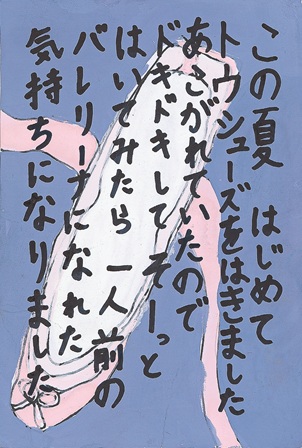 この夏　はじめて
トウシューズをはきました
あこがれていたので
ドキドキして そーっと
はいてみたら 一人前の
バレリーナになれた
気持ちになりました